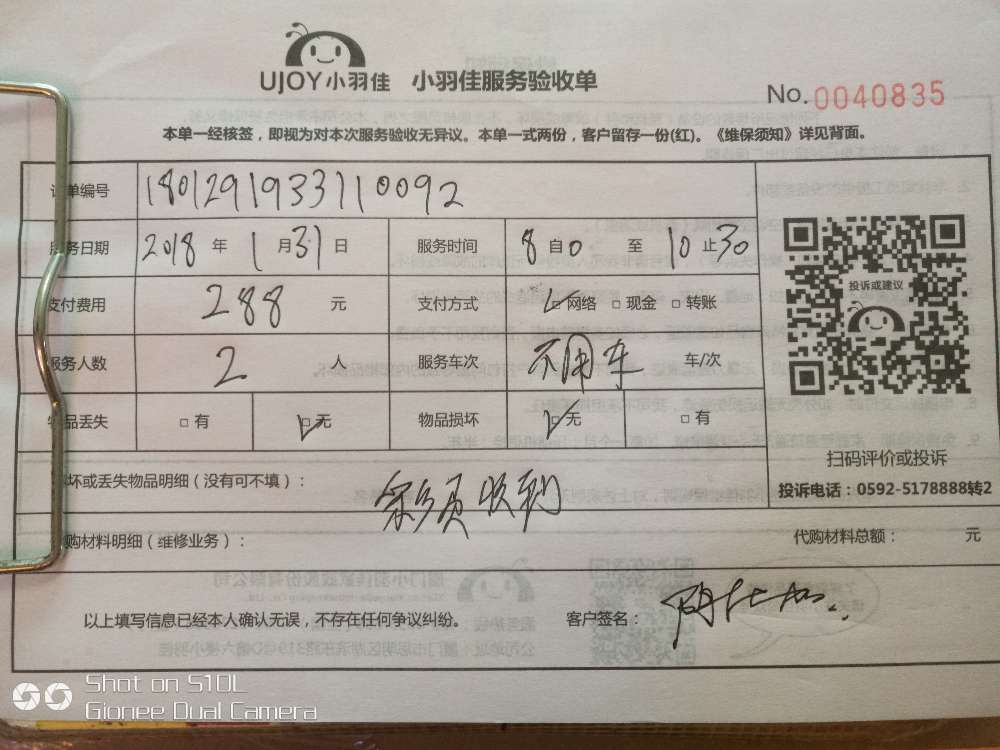 UJOY小羽佳 小羽佳服务验收单
No. 0040835
本单一经核签，即视为对本次服务验收无异议。本单一式两份，客户留存一份(红)。《维保须知》详见背面。
单编号 1801291933110092
务日期 2018 年 1 月 31 日 服务时间 8 自 0 至 10 止 30
支付费用 288 元 支付方式 ☑网络 □现金 □转账
服务人数 2 人 服务车次 不用车 车/次
物品丢失 □有 ☑无 物品损坏 ☑无 □有
投诉或建议
扫码评价或投诉
投诉电话：0592-5178888转2
坏或丢失物品明细（没有可不填）： 收到
购材料明细（维修业务）： 代购材料总额： 元
以上填写信息已经本人确认无误，不存在任何争议纠纷。 客户签名：
Shot on S10L
Gionee Dual Camera